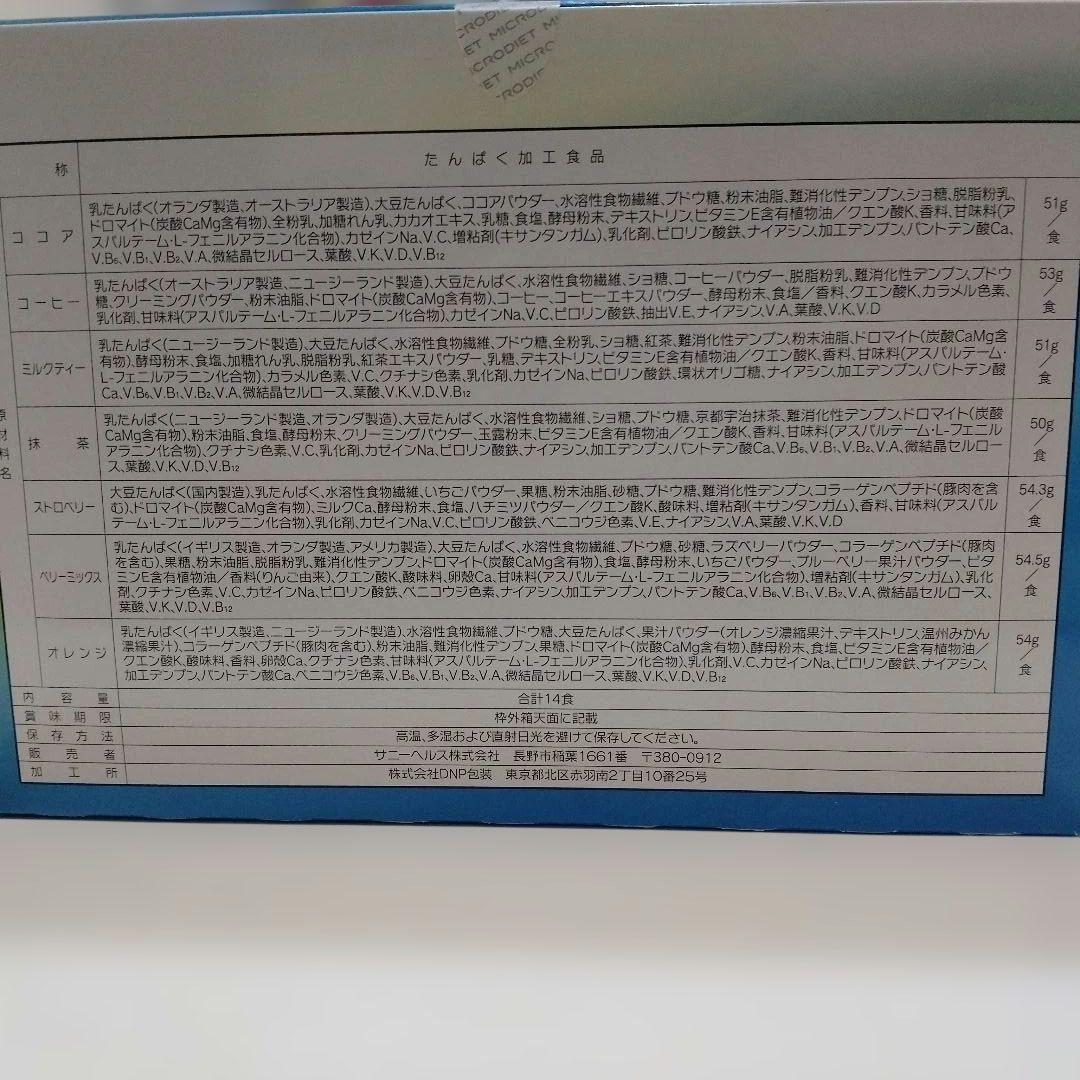 CRODIET MICRO
ET MICROD
ICRODIET M
ET MICRO
CRODIE
称 たんぱく加工食品
ココア
乳たんぱく(オランダ製造、オーストラリア製造)、大豆たんぱく、ココアパウダー、水溶性食物繊維、ブドウ糖、粉末油脂、難消化性デンプン、ショ糖、脱脂粉乳、
ドロマイト(炭酸CaMg含有物)、全粉乳、加糖れん乳、カカオエキス、乳糖、食塩、酵母粉末、デキストリン、ビタミンE含有植物油／クエン酸K、香料、甘味料(ア
スパルテーム・L-フェニルアラニン化合物)、カゼインNa、V.C、増粘剤(キサンタンガム)、乳化剤、ピロリン酸鉄、ナイアシン、加工デンプン、パントテン酸Ca、
V.B₆、V.B₁、V.B₂、V.A、微結晶セルロース、葉酸、V.K、V.D、V.B₁₂
51g／食
コーヒー
乳たんぱく(オーストラリア製造、ニュージーランド製造)、大豆たんぱく、水溶性食物繊維、ショ糖、コーヒーパウダー、脱脂粉乳、難消化性デンプン、ブドウ
糖、クリーミングパウダー、粉末油脂、ドロマイト(炭酸CaMg含有物)、コーヒー、コーヒーエキスパウダー、酵母粉末、食塩／香料、クエン酸K、カラメル色素、
乳化剤、甘味料(アスパルテーム・L-フェニルアラニン化合物)、カゼインNa、V.C、ピロリン酸鉄、抽出V.E、ナイアシン、V.A、葉酸、V.K、V.D
53g／食
ミルクティー
乳たんぱく(ニュージーランド製造)、大豆たんぱく、水溶性食物繊維、ブドウ糖、全粉乳、ショ糖、紅茶、難消化性デンプン、粉末油脂、ドロマイト(炭酸CaMg含
有物)、酵母粉末、食塩、加糖れん乳、脱脂粉乳、紅茶エキスパウダー、乳糖、デキストリン、ビタミンE含有植物油／クエン酸K、香料、甘味料(アスパルテーム・
L-フェニルアラニン化合物)、カラメル色素、V.C、クチナシ色素、乳化剤、カゼインNa、ピロリン酸鉄、環状オリゴ糖、ナイアシン、加工デンプン、パントテン酸
Ca、V.B₆、V.B₁、V.B₂、V.A、微結晶セルロース、葉酸、V.K、V.D、V.B₁₂
51g／食
原材料名
抹茶
乳たんぱく(ニュージーランド製造、オランダ製造)、大豆たんぱく、水溶性食物繊維、ショ糖、ブドウ糖、京都宇治抹茶、難消化性デンプン、ドロマイト(炭酸
CaMg含有物)、粉末油脂、食塩、酵母粉末、クリーミングパウダー、玉露粉末、ビタミンE含有植物油／クエン酸K、香料、甘味料(アスパルテーム・L-フェニル
アラニン化合物)、クチナシ色素、V.C、乳化剤、カゼインNa、ピロリン酸鉄、ナイアシン、加工デンプン、パントテン酸Ca、V.B₆、V.B₁、V.B₂、V.A、微結晶セルロー
ス、葉酸、V.K、V.D、V.B₁₂
50g／食
ストロベリー
大豆たんぱく(国内製造)、乳たんぱく、水溶性食物繊維、いちごパウダー、果糖、粉末油脂、砂糖、ブドウ糖、難消化性デンプン、コラーゲンペプチド(豚肉を含
む)、ドロマイト(炭酸CaMg含有物)、ミルクCa、酵母粉末、食塩、ハチミツパウダー／クエン酸K、酸味料、増粘剤(キサンタンガム)、香料、甘味料(アスパル
テーム・L-フェニルアラニン化合物)、乳化剤、カゼインNa、V.C、ピロリン酸鉄、ベニコウジ色素、V.E、ナイアシン、V.A、葉酸、V.K、V.D
54.3g／食
ベリーミックス
乳たんぱく(イギリス製造、オランダ製造、アメリカ製造)、大豆たんぱく、水溶性食物繊維、ブドウ糖、砂糖、ラズベリーパウダー、コラーゲンペプチド(豚肉
を含む)、果糖、粉末油脂、脱脂粉乳、難消化性デンプン、ドロマイト(炭酸CaMg含有物)、食塩、酵母粉末、いちごパウダー、ブルーベリー果汁パウダー、ビタ
ミンE含有植物油／香料(りんご由来)、クエン酸K、酸味料、卵殻Ca、甘味料(アスパルテーム・L-フェニルアラニン化合物)、増粘剤(キサンタンガム)、乳化
剤、クチナシ色素、V.C、カゼインNa、ピロリン酸鉄、ベニコウジ色素、ナイアシン、加工デンプン、パントテン酸Ca、V.B₆、V.B₁、V.B₂、V.A、微結晶セルロース、
葉酸、V.K、V.D、V.B₁₂
54.5g／食
オレンジ
乳たんぱく(イギリス製造、ニュージーランド製造)、水溶性食物繊維、ブドウ糖、大豆たんぱく、果汁パウダー(オレンジ濃縮果汁、デキストリン、温州みかん
濃縮果汁)、コラーゲンペプチド(豚肉を含む)、粉末油脂、難消化性デンプン、果糖、ドロマイト(炭酸CaMg含有物)、酵母粉末、食塩、ビタミンE含有植物油／
クエン酸K、酸味料、香料、卵殻Ca、クチナシ色素、甘味料(アスパルテーム・L-フェニルアラニン化合物)、乳化剤、V.C、カゼインNa、ピロリン酸鉄、ナイアシン、
加工デンプン、パントテン酸Ca、ベニコウジ色素、V.B₆、V.B₁、V.B₂、V.A、微結晶セルロース、葉酸、V.K、V.D、V.B₁₂
54g／食
内容量 合計14食
賞味期限 枠外箱天面に記載
保存方法 高温、多湿および直射日光を避けて保存してください。
販売者 サニーヘルス株式会社 長野市稲葉1661番 〒380-0912
加工所 株式会社DNP包装 東京都北区赤羽南2丁目10番25号